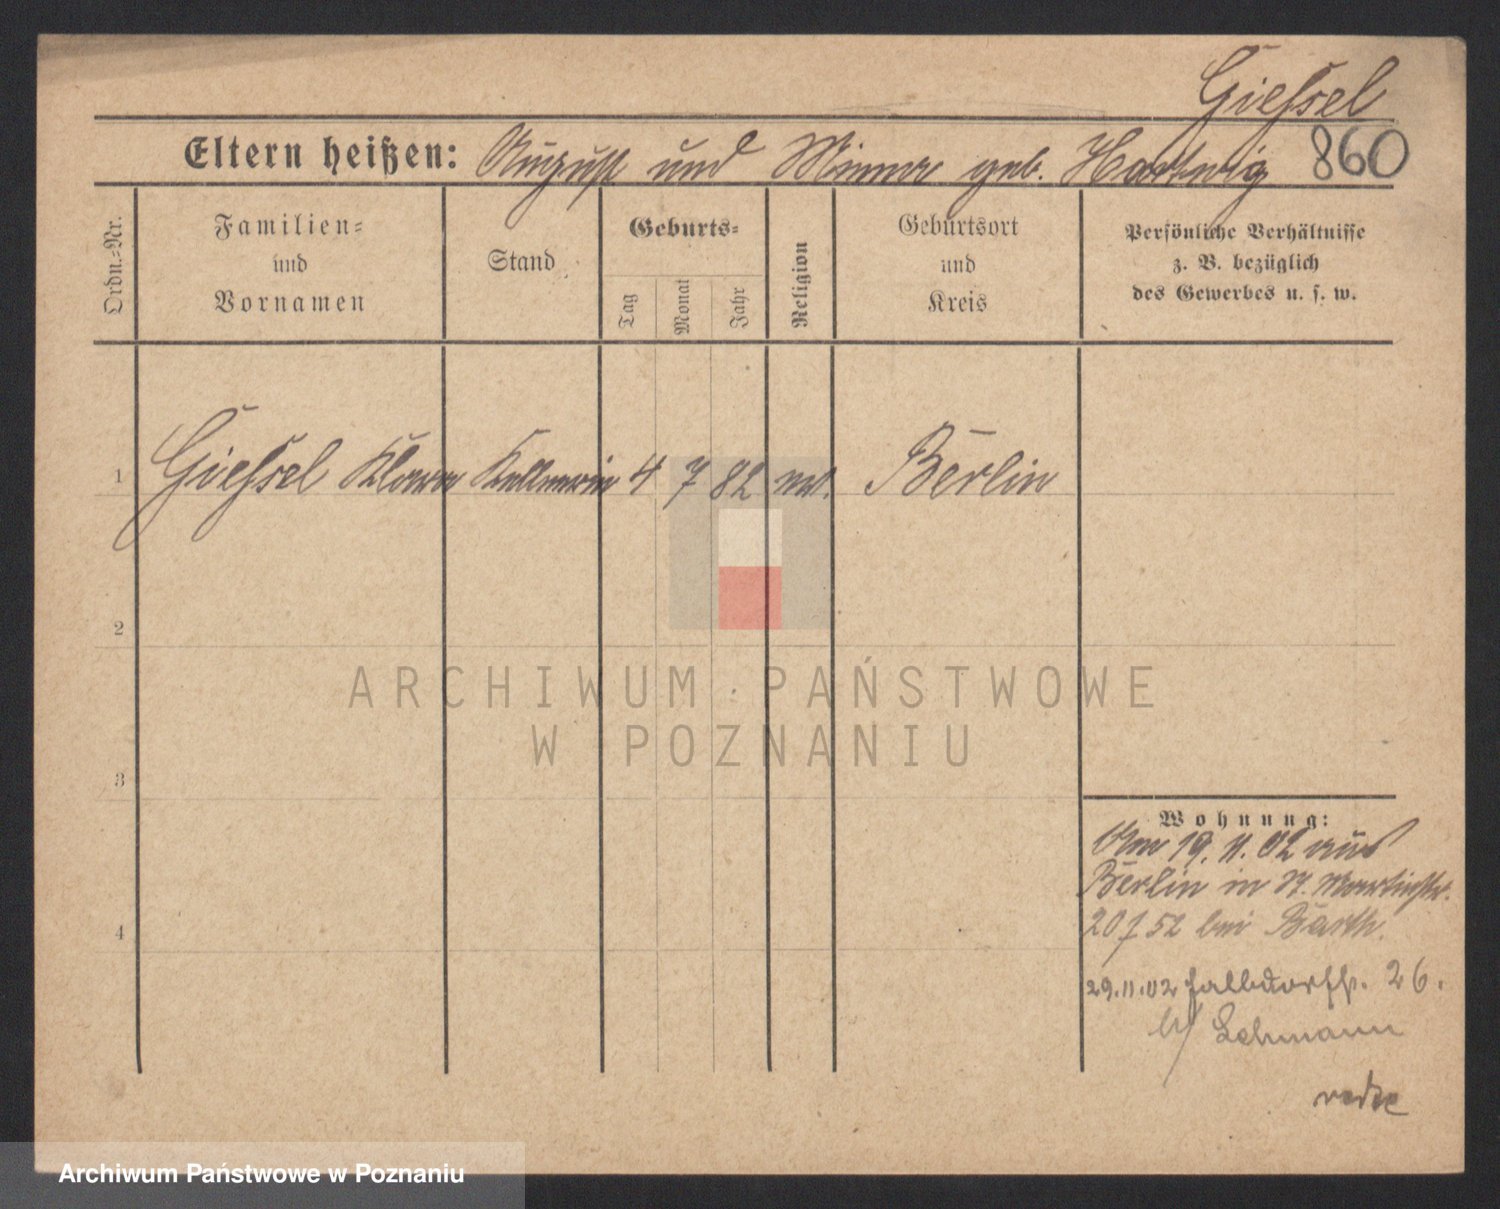 Gießel
Eltern heißen: August und Minna geb. Hartwig 860
Ordn.-Nr.
Familien-
und
Vornamen
Stand
Geburts-
Tag
Monat
Jahr
Religion
Geburtsort
und
Kreis
Persönliche Verhältnisse
z. B. bezüglich
des Gewerbes u. s. w.
1 Gießel Klara Kellnerin 4 7 82 ev. Berlin
2
ARCHIWUM PAŃSTWOWE
W POZNANIU
3
Wohnung:
Am 19. 11. 02 aus
Berlin in St. Martinstr.
4
bei Barth.
29.11.02 26.
b/ Lehmann
Archiwum Państwowe w Poznaniu